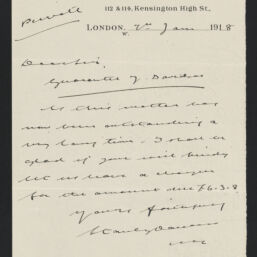 112 & 114, Kensington High St.,
London, 2nd Jan 1918
W.
Dear Sir,
Guarantee
As this matter has
now been outstanding a
very long time I shall be
glad if you will kindly
let us have a cheque
for the amount due £6-3-8
Yours faithfully